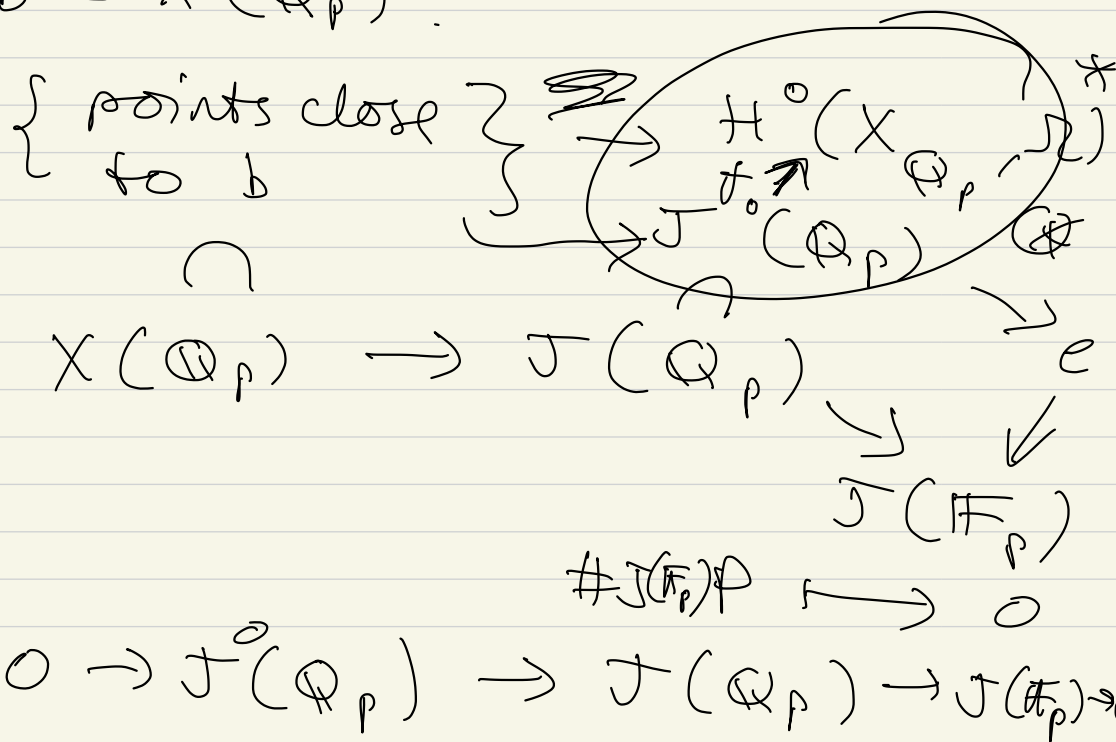 X(Q_p).
{ points close to b } → H^0(X_{Q_p}, Ω)^*
J^0(Q_p)
∩ ∩
X(Q_p) → J(Q_p) ↘ e
↘ ↙
J(F_p)
#J(F_p)P ↦ 0
0 → J^0(Q_p) → J(Q_p) → J(F_p) →